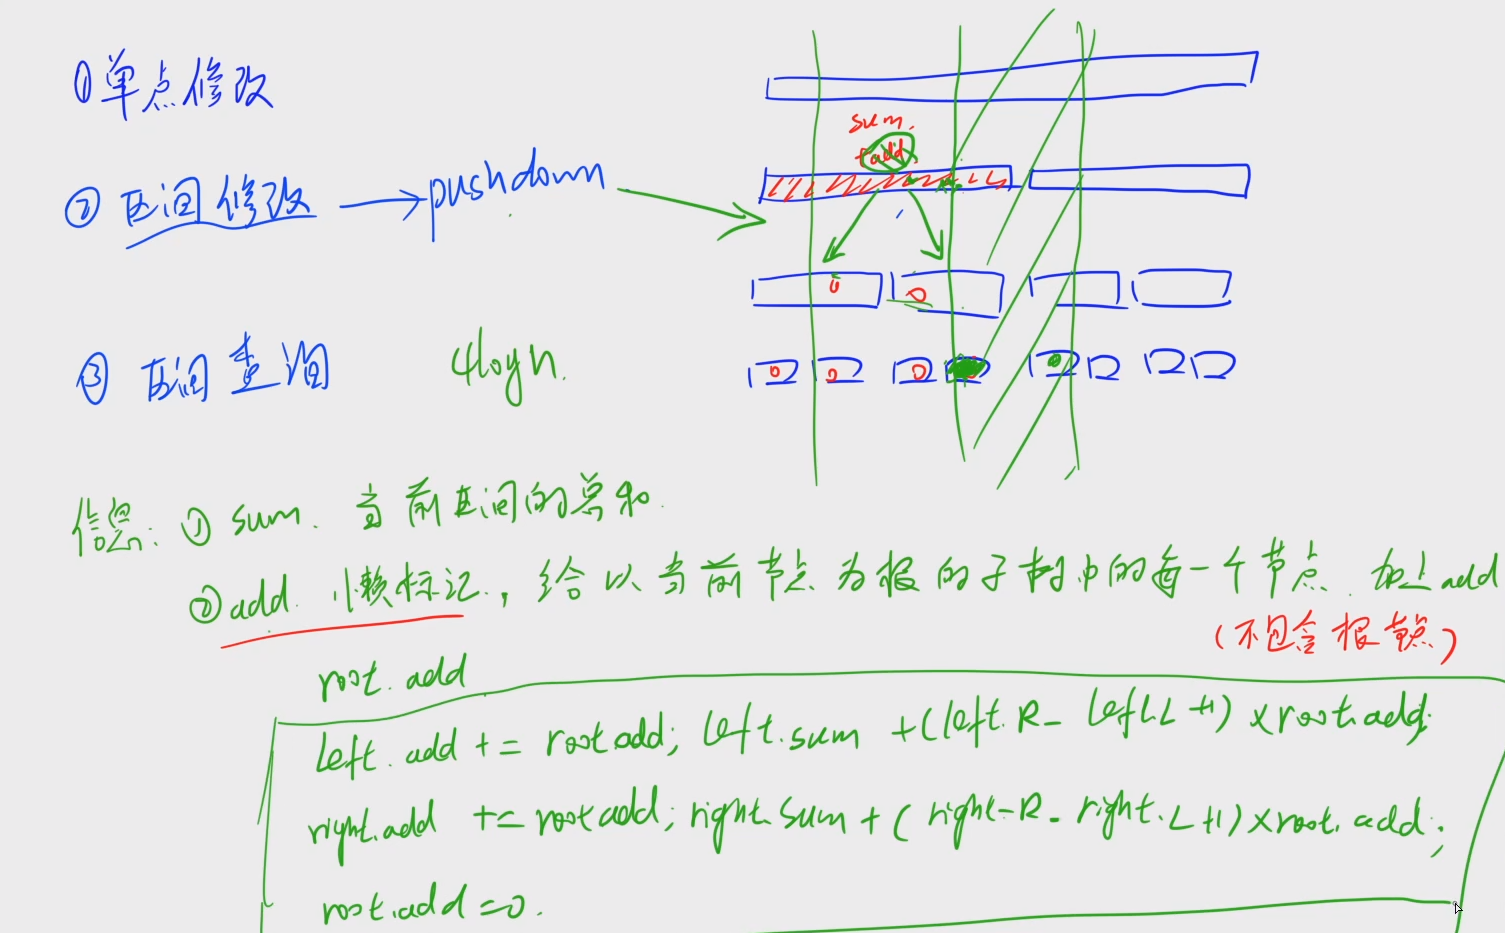 ①单点修改
sum.
add
②区间修改 → pushdown
③区间查询 4logn.
信息: ① sum. 当前区间的总和.
②add. 懒标记, 给以当前节点为根的子树中的每一个节点. 加上add
(不包含根节点)
root.add
left.add += root.add; left.sum +(left.R- left.L+1)×root.add;
right.add += root.add; right.sum + (right-R- right.L+1)×root.add;
root.add=0.